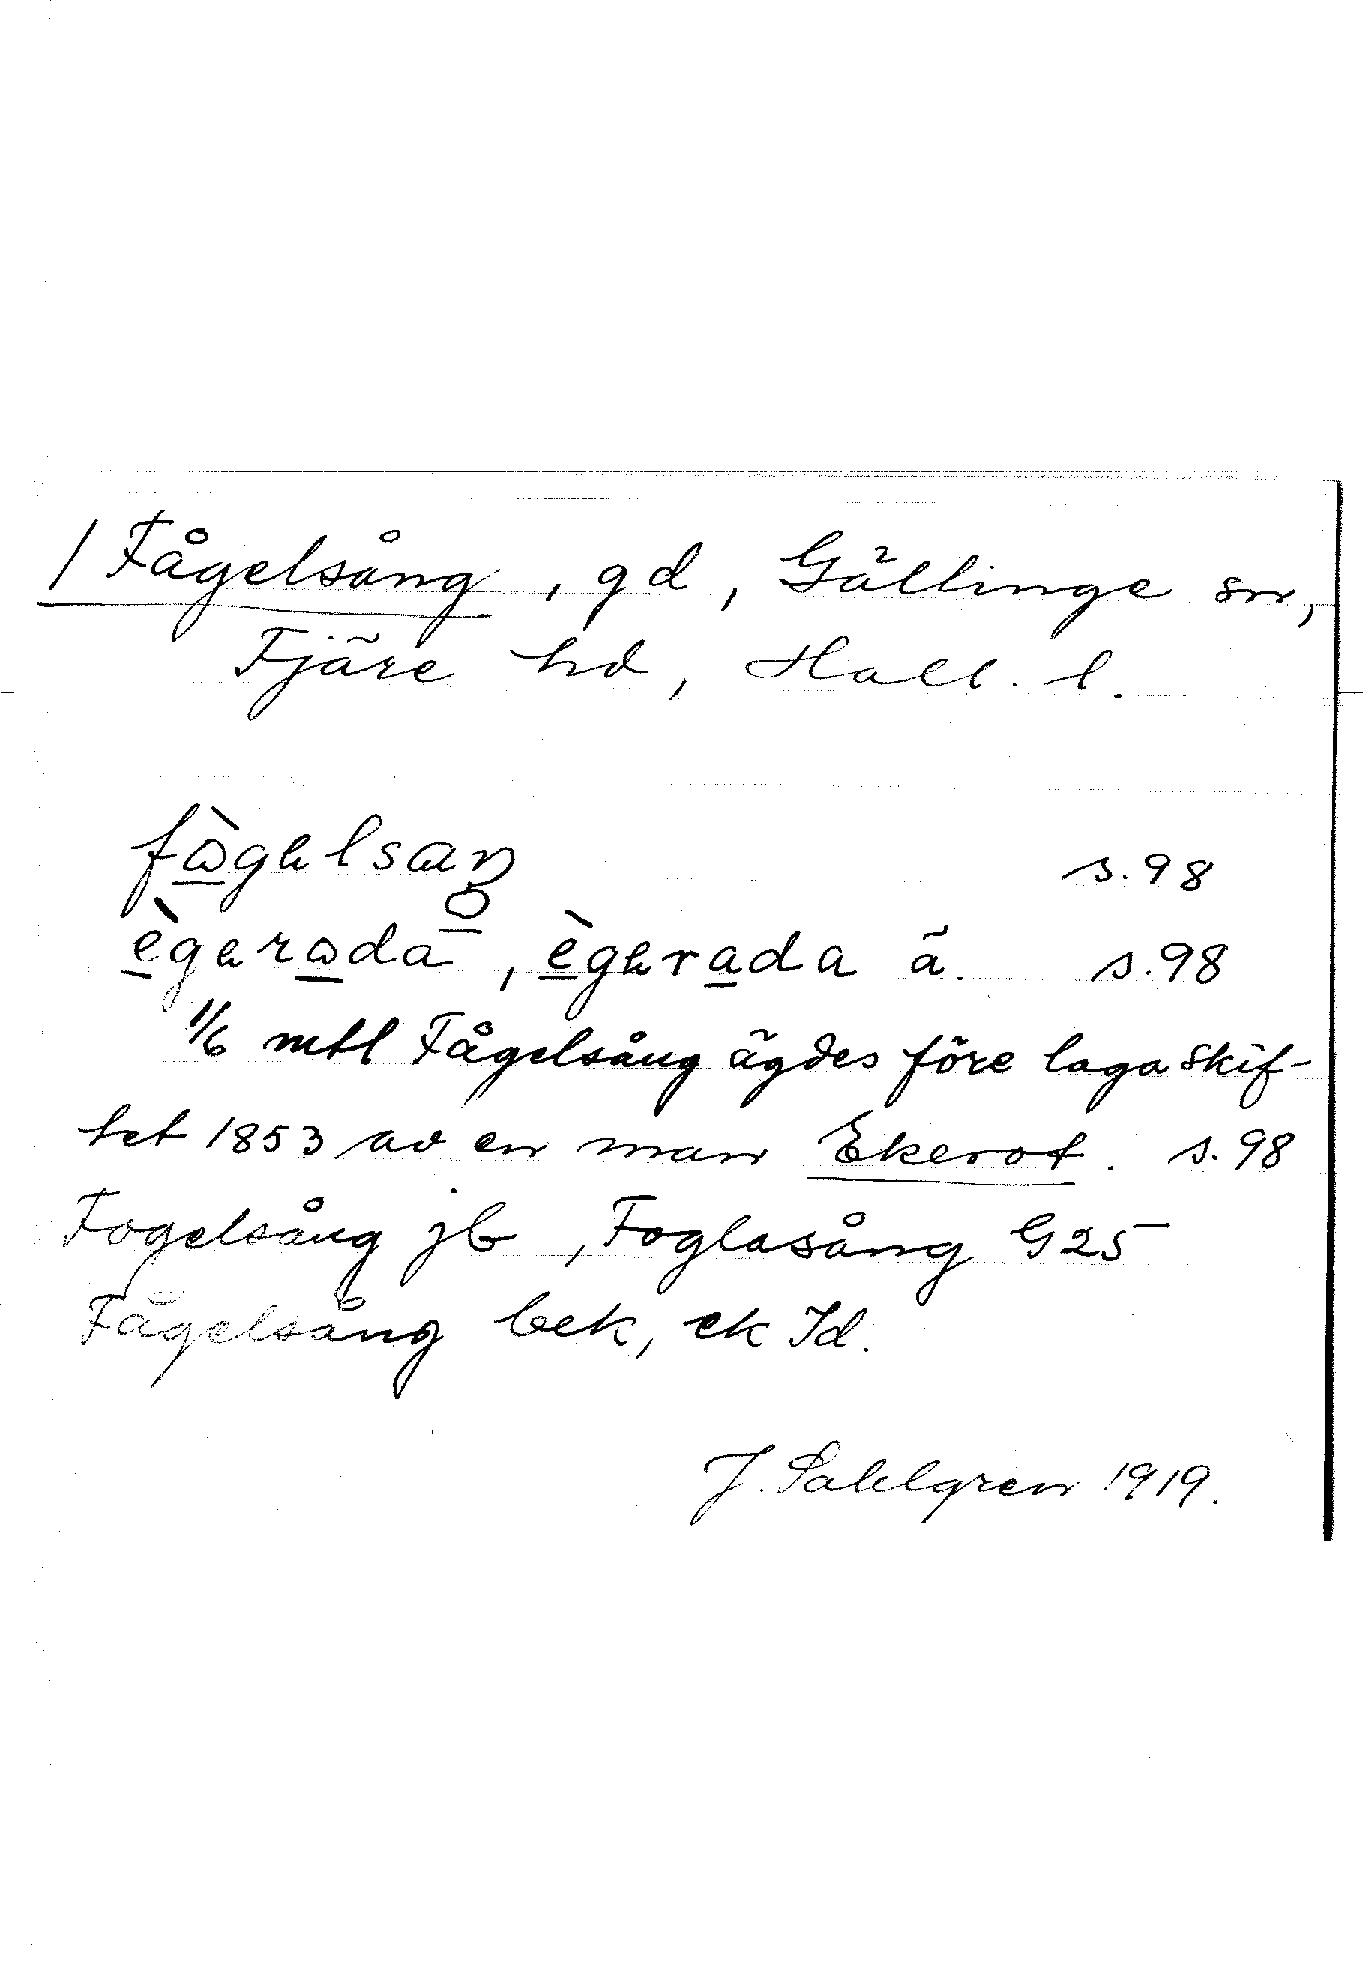 / Fågelsång, gd, Gällinge sn,
Fjäre hd, Hall. l.
fɷ̀gəlsaŋ s.98
ègərɷda, ègərada ä. s.98
1/6 mtl Fågelsång ägdes före laga skif-
tet 1853 av en man Ekerot. s.98
Fogelsång jb, Foglasång G25
Fågelsång bek, ek Id.
J. Sahlgren 1919.